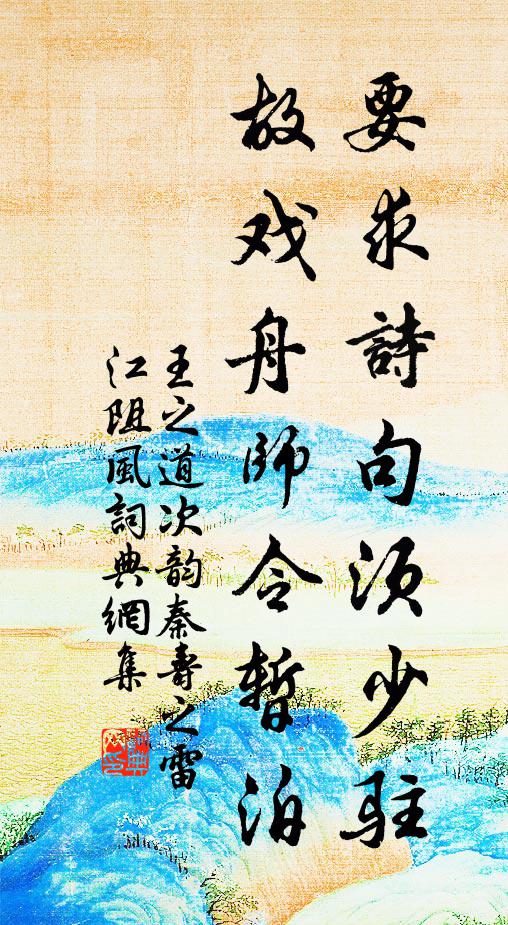 要求詩句須少駐
故戏舟師令暫泊
王之道次韵秦寿之雷
江阻風詞典網集